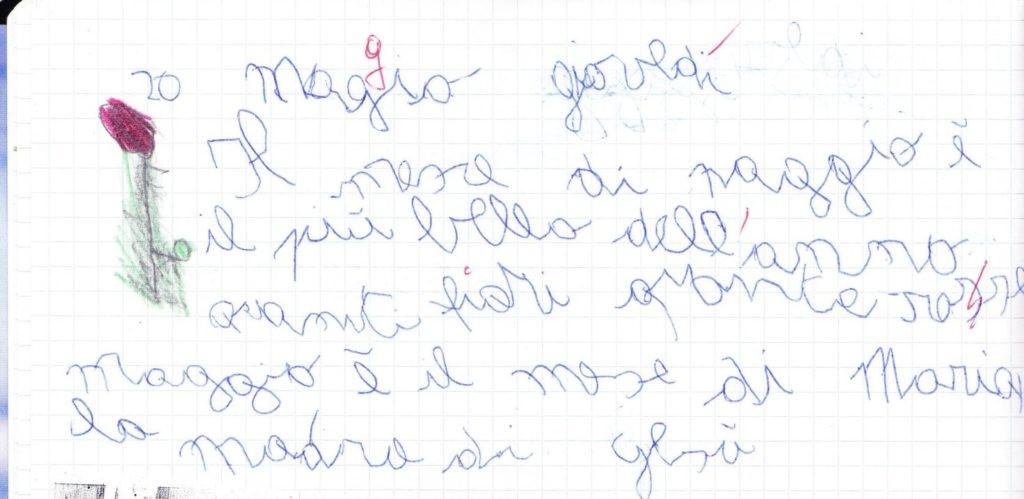 20 Maggio giovedì
Il mese di maggio è
il più bello dell'anno
quanti fiori quante rose
maggio è il mese di Maria
la madre di gesù